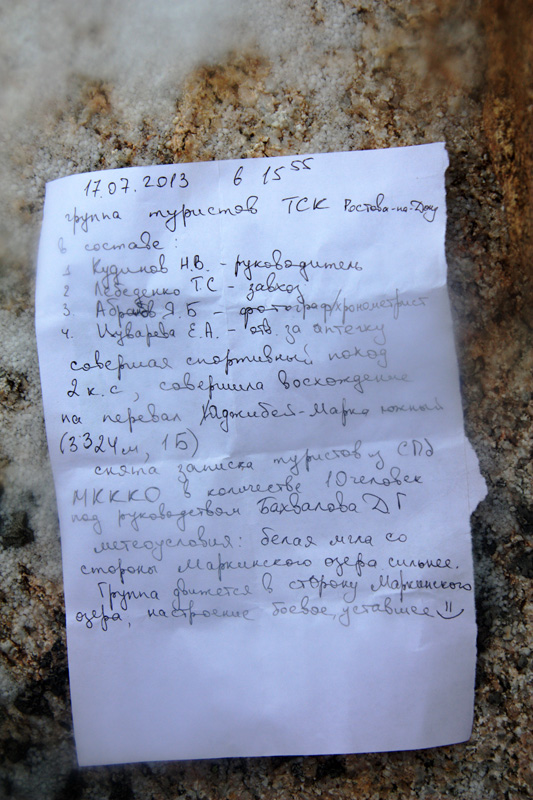 17.07.2013 в 15 55
группа туристов ТСК Ростова-на-Дону
в составе:
1 Кудинов Н.В. - руководитель
2 Лебеденко Т.С - завхоз
3 Абрамов Я.Б - фотограф/хронометрист
4. Шуварева Е.А. - отв. за аптечку
совершая спортивный поход
2 к.с, совершила восхождение
на перевал Хаджибей-Марка южный
(3324м, 1Б)
снята записка туристов из СПб
МКККО в количестве 10 человек
под руководством Бахвалова ДГ
метеоусловия: белая мгла со
стороны Маркинского озера сильнее.
Группа движется в сторону Маркинского
озера, настроение боевое, уставшее